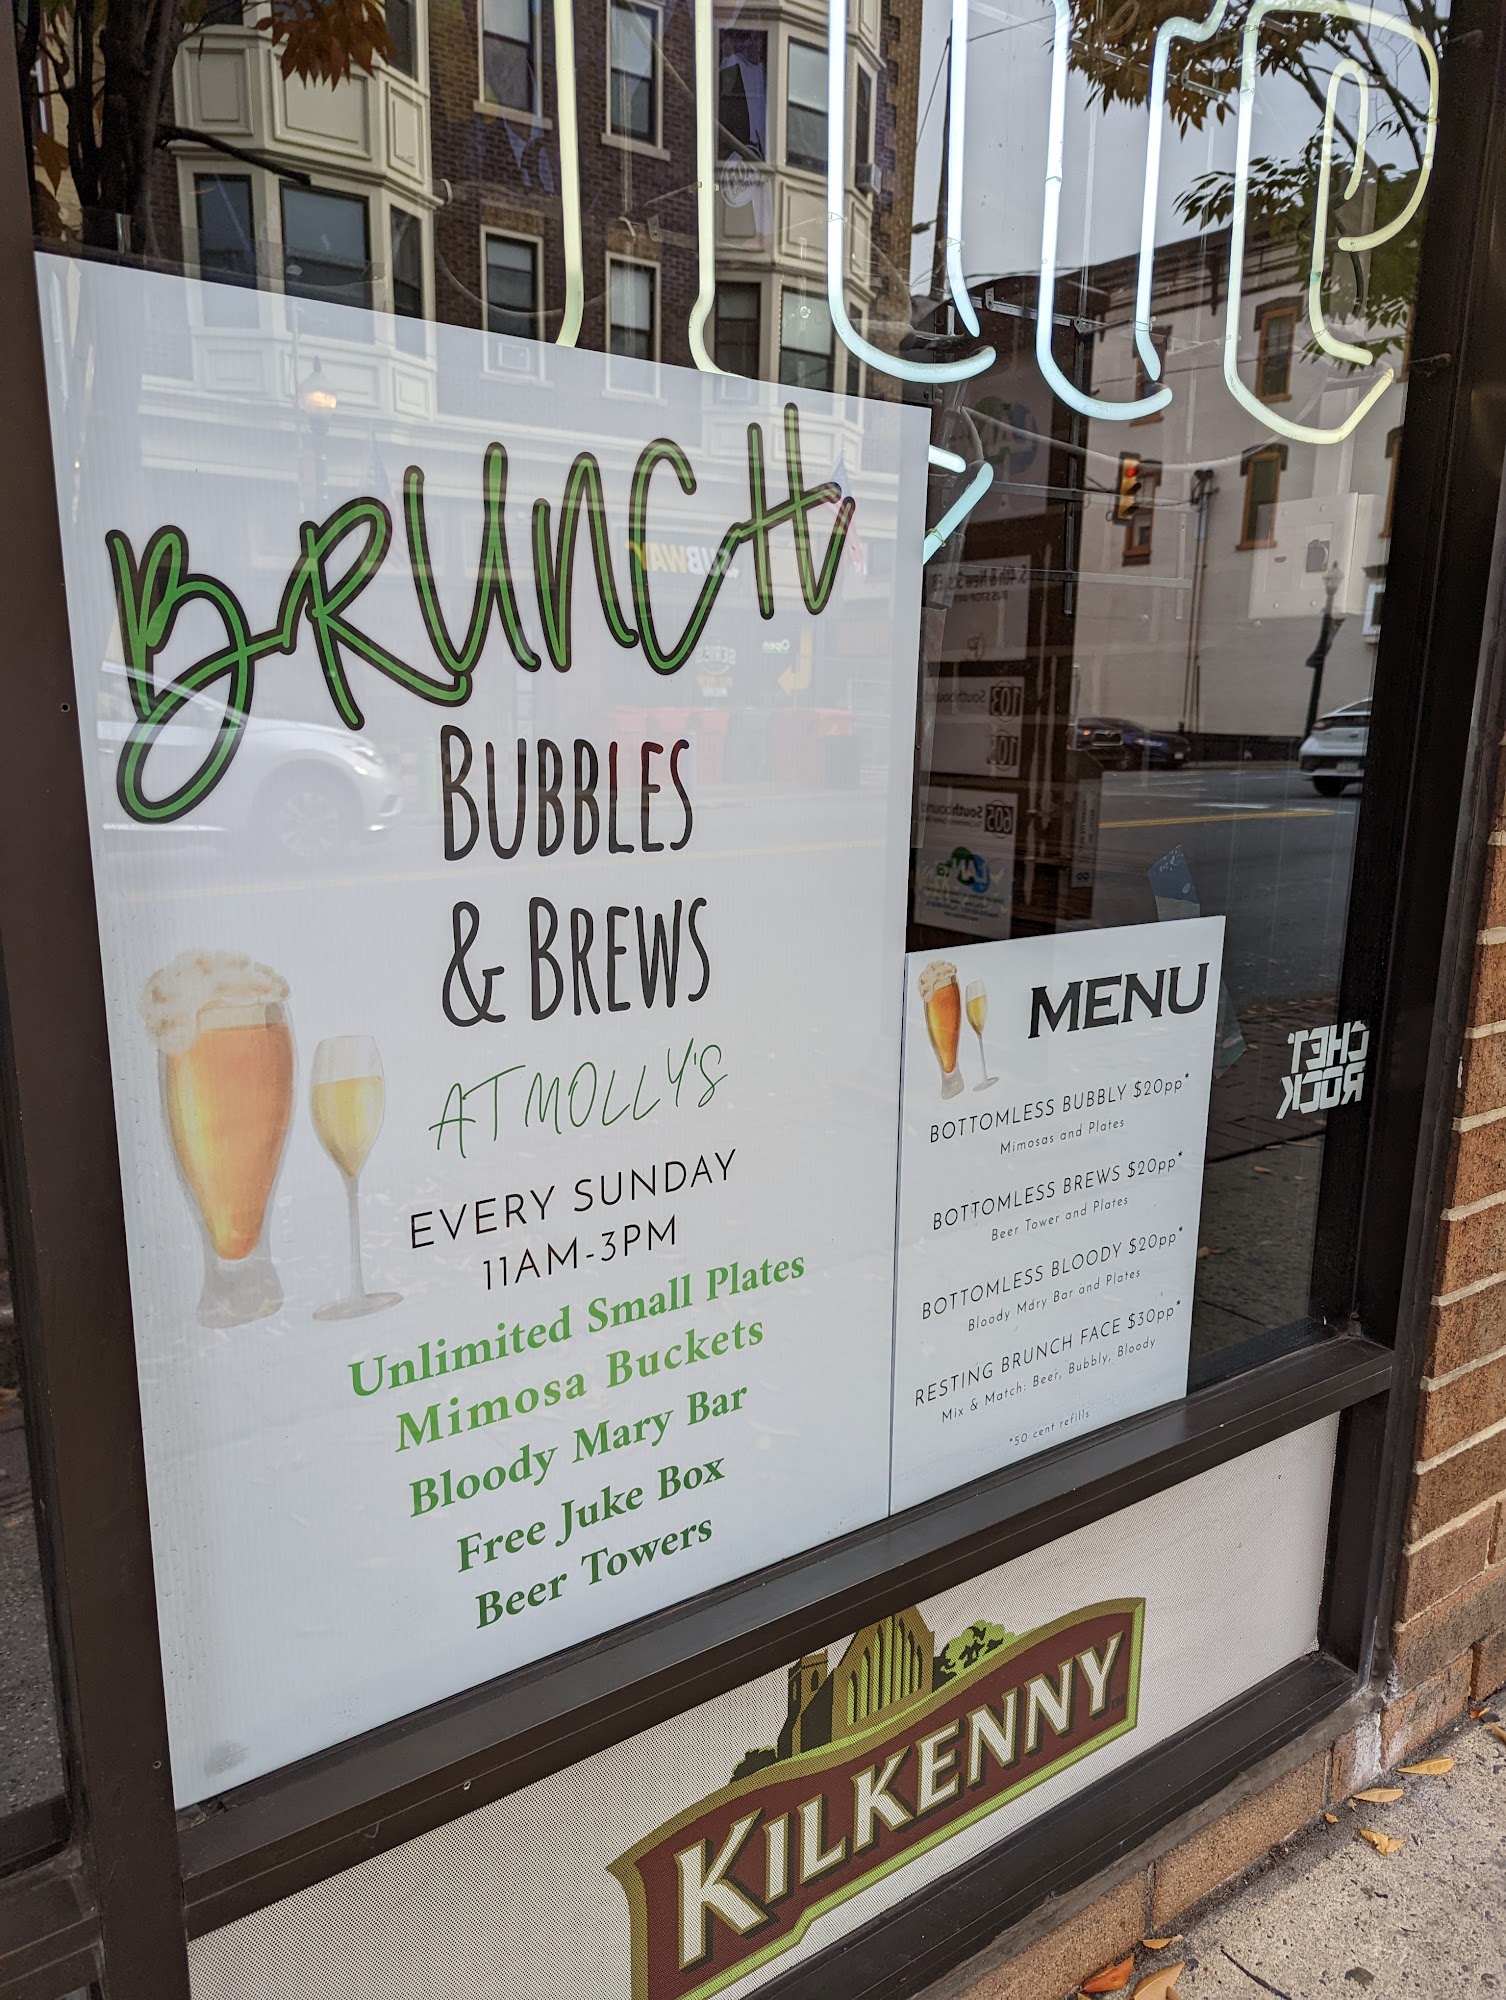 BRUNCH
BUBBLES
& BREWS
AT MOLLY'S
EVERY SUNDAY
11AM-3PM
Unlimited Small Plates
Mimosa Buckets
Bloody Mary Bar
Free Juke Box
Beer Towers
MENU
BOTTOMLESS BUBBLY $20pp*
Mimosas and Plates
BOTTOMLESS BREWS $20pp*
Beer Tower and Plates
BOTTOMLESS BLOODY $20pp*
Bloody Mary Bar and Plates
RESTING BRUNCH FACE $30pp*
Mix & Match: Beer, Bubbly, Bloody
*50 cent refills
KILKENNY
CHEF
ROCK
SUBWAY
Open
SERIES
S. 4th & New St
BUS STOP
103 Southbound
605 Southbound